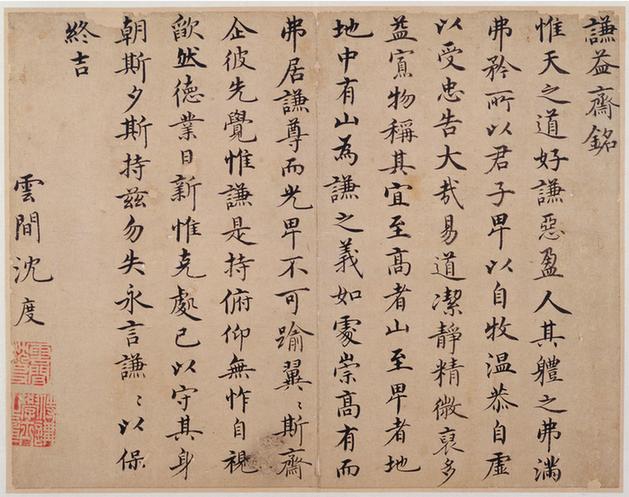 謙益齋銘
惟天之道好謙惡盈人其軆之弗滿
弗矜所以君子卑以自牧溫恭自虛
以受忠告大哉易道潔靜精微裒多
益寡物稱其宜至高者山至卑者地
地中有山為謙之義如處崇高有而
弗居謙尊而光卑不可踰翼〻斯齋
企彼先覺惟謙是持俯仰無怍自視
欿然德業日新惟克處己以守其身
朝斯夕斯持茲勿失永言謙〻以保
終吉
雲間沈度